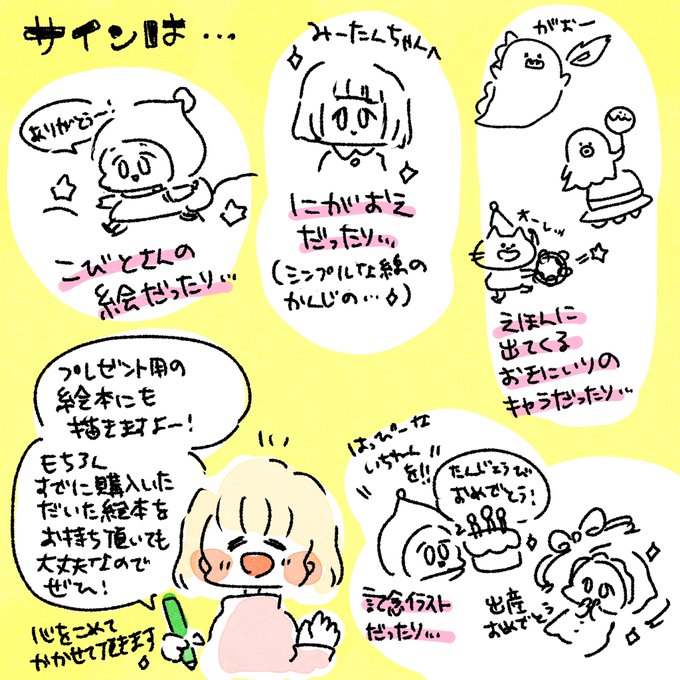 サインは…
ありがとう〜!
こびとさんの
絵だったり…
みーたんちゃんへ
にがおえ
だったり…
(シンプルな線の
かんじの…)
がおー
オーレッ
えほんに
出てくる
おきにいりの
キャラだったり…
プレゼント用の
絵本にも
描きますよー!
もちろん
すでに購入いた
だいた絵本を
お持ち頂いても
大丈夫なので
ぜひ!
心をこめて
かかせて頂きます
はっぴーな
いちねん
を!!
たんじょうび
おめでとう!
記念イラスト
だったり…
出産
おめでとう